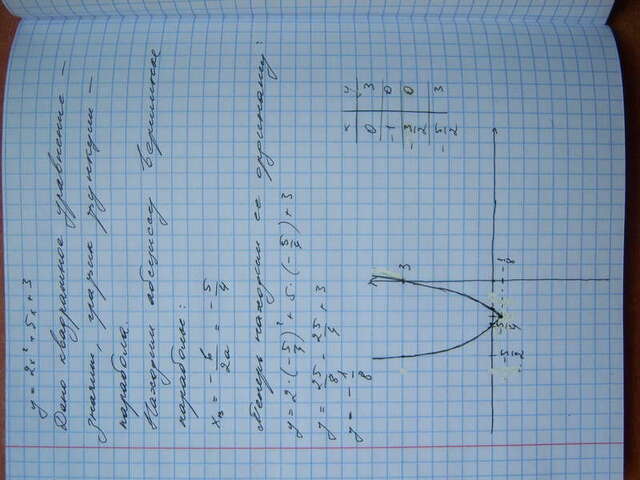 y = 2x² + 5x + 3
Дано квадратное уравнение –
значит, график функции –
парабола.
Находим абсциссу вершины
параболы:
xв = - b/2a = - 5/4
Теперь находим её ординату:
y = 2·(-5/4)² + 5·(-5/4) + 3
y = 25/8 - 25/4 + 3
y = - 1/8
x y
0 3
-1 0
-3/2 0
-5/2 3
3
-1/8
-5/4
-5/2